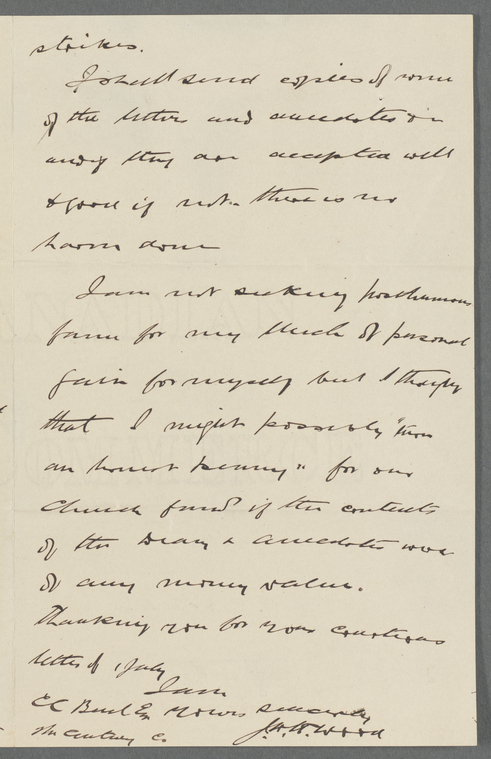 strikes.
I shall send copies of some
of the letters and anecdotes on
and if they are accepted well
& good if not - there is no
harm done
I am not seeking posthumous
fame for my Uncle or personal
gain for myself but I thought
that I might possibly "turn
an honest penny" for our
Church fund if the contents
of the Diary & anecdotes were
of any money value.
Thanking you for your courteous
letter of 1 July
I am
C C Buel Esq Yours sincerely
The Century Co. J. W. Wood